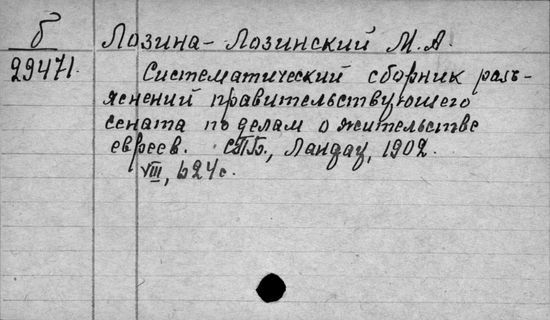 б Лозина-Лозинский М.А.
29471. Систематический сборник разъ-
яснений правительствующего
сената по делам о жительстве
евреев. СПБ., Ландау, 1902.
VIII, 624с.